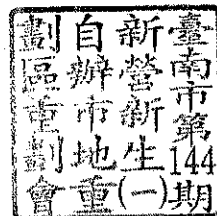 臺南市第144期
新營新生(一)
自辦市地重
劃區重劃會